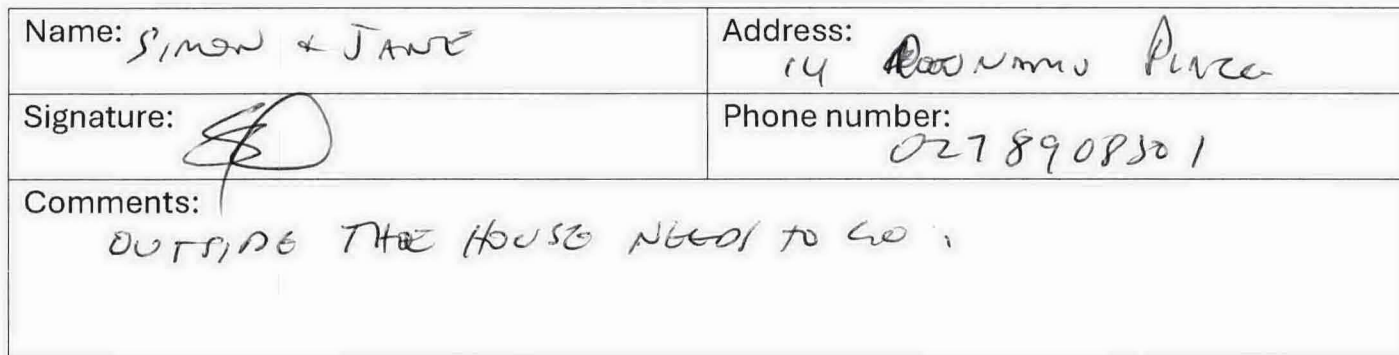 Name: SIMON & JANE
Address:
14 PLACE
Signature:
Phone number:
0278908301
Comments:
OUTSIDE THE HOUSE NEEDS TO GO.